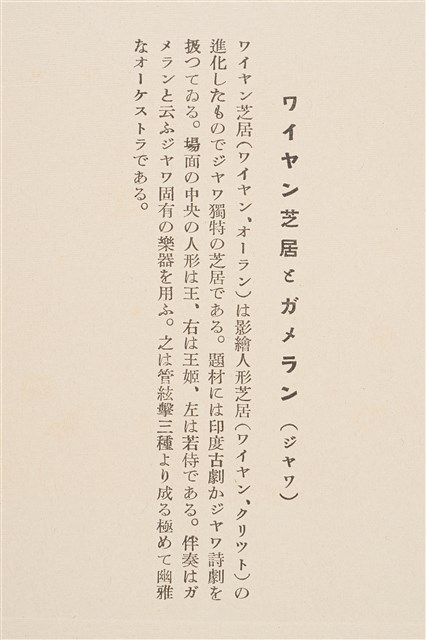 ワイヤン芝居とガメラン（ジャワ）
ワイヤン芝居（ワイヤン、オーラン）は影繪人形芝居（ワイヤン、クリツト）の
進化したものでジャワ獨特の芝居である。題材には印度古劇かジャワ詩劇を
扱つてゐる。場面の中央の人形は王、右は王姬、左は若侍である。伴奏はガ
メランと云ふジャワ固有の樂器を用ふ。之は管絃擊三種より成る極めて幽雅
なオーケストラである。